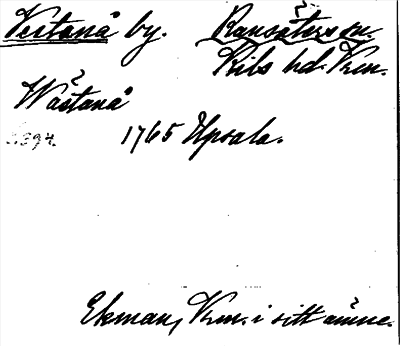 Västanå by. Ransäters sn.
Kils hd. Vrm.
Wästanå
S. 394. 1765 Upsala.
Ekman, Vrm. i sitt ämne.